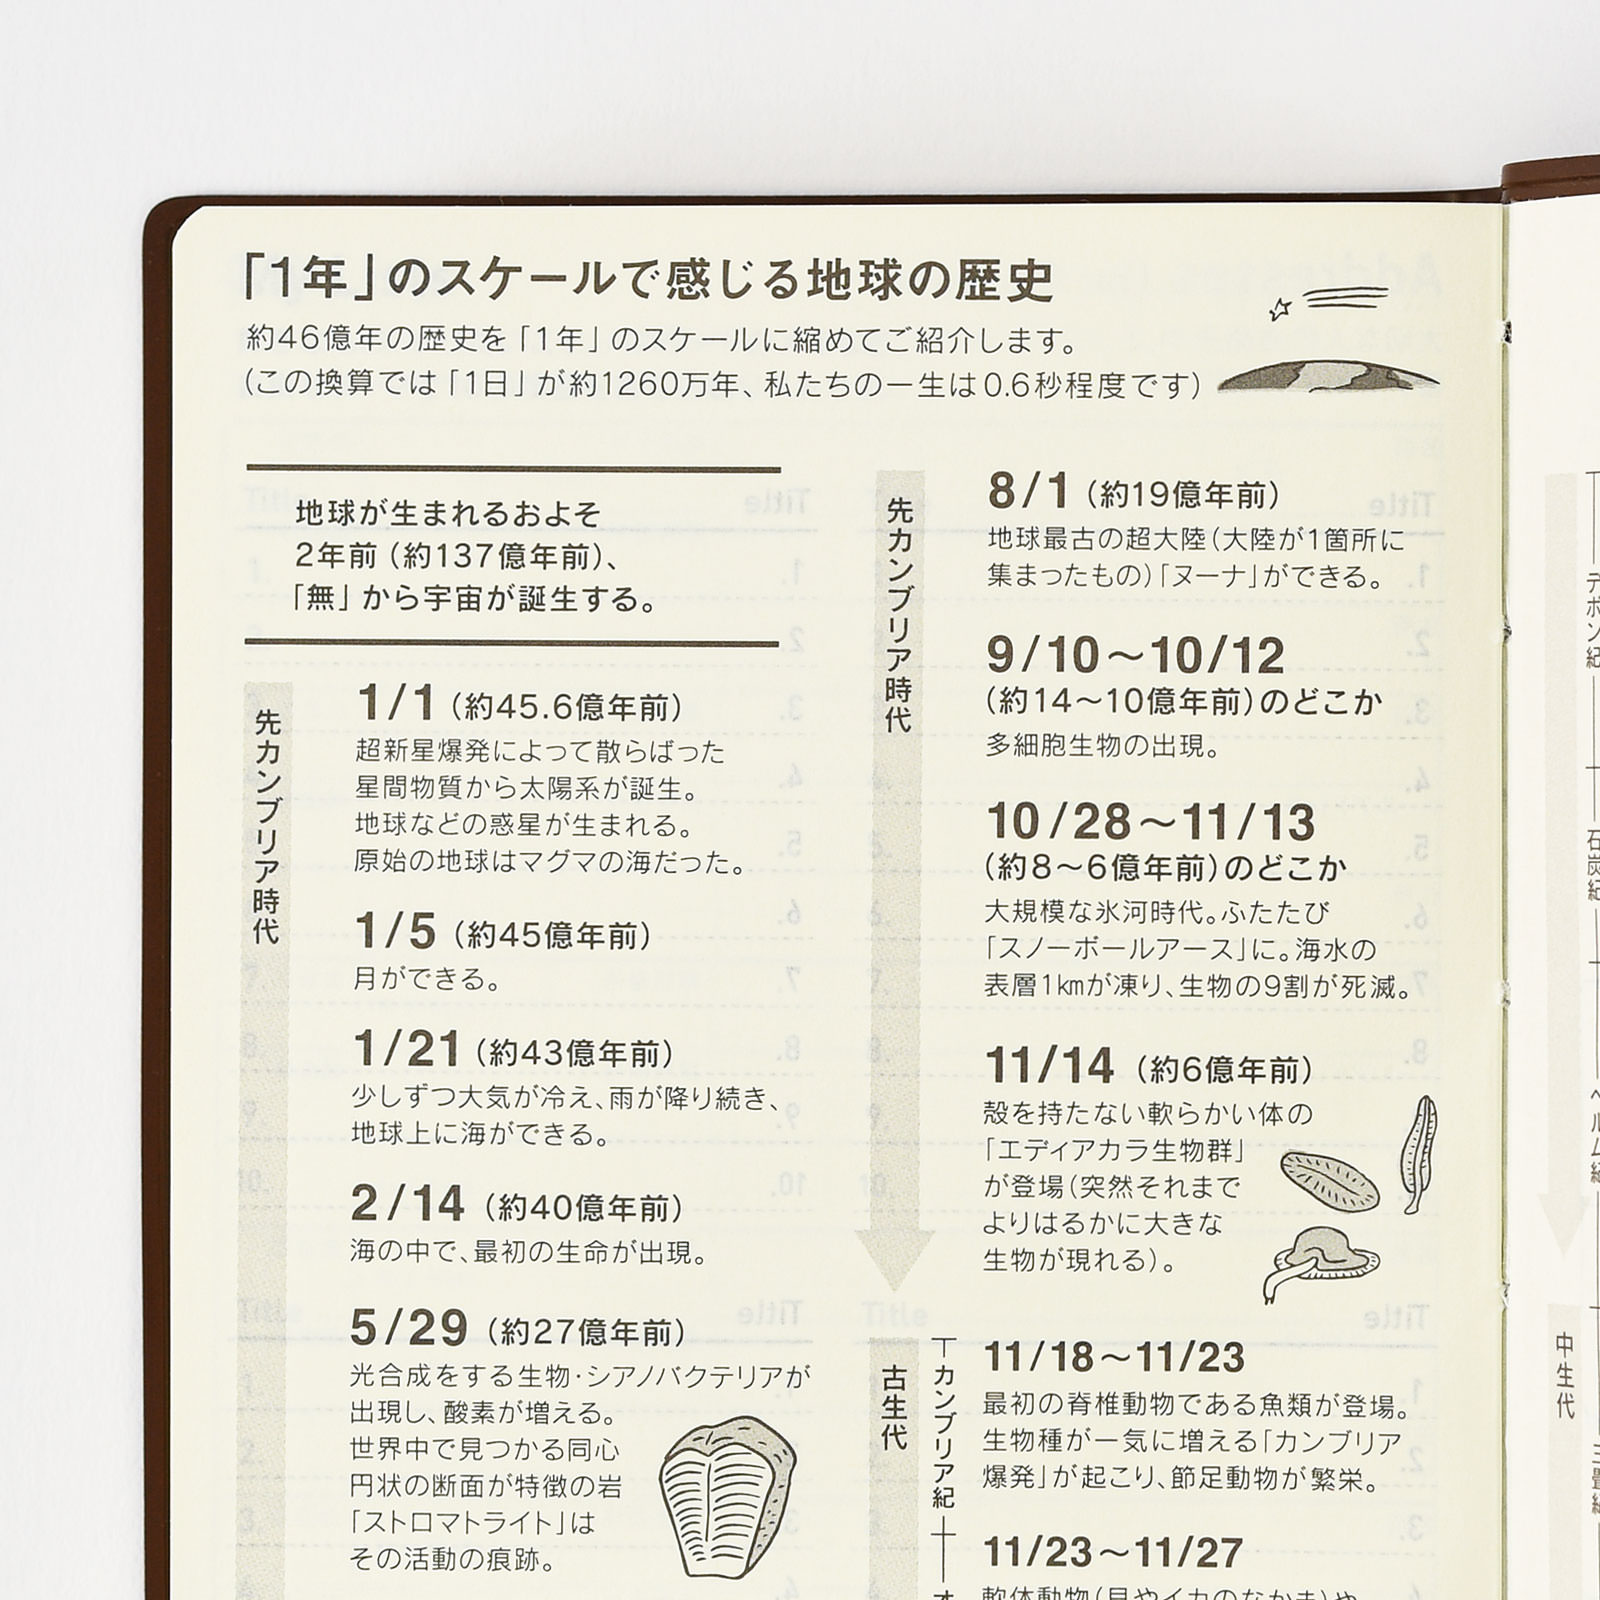 「1年」のスケールで感じる地球の歴史
約46億年の歴史を「1年」のスケールに縮めてご紹介します。
(この換算では「1日」が約1260万年、私たちの一生は0.6秒程度です)
地球が生まれるおよそ
2年前(約137億年前)、
「無」から宇宙が誕生する。
先カンブリア時代
1/1(約45.6億年前)
超新星爆発によって散らばった
星間物質から太陽系が誕生。
地球などの惑星が生まれる。
原始の地球はマグマの海だった。
1/5(約45億年前)
月ができる。
1/21(約43億年前)
少しずつ大気が冷え、雨が降り続き、
地球上に海ができる。
2/14(約40億年前)
海の中で、最初の生命が出現。
5/29(約27億年前)
光合成をする生物・シアノバクテリアが
出現し、酸素が増える。
世界中で見つかる同心
円状の断面が特徴の岩
「ストロマトライト」は
その活動の痕跡。
先カンブリア時代
8/1(約19億年前)
地球最古の超大陸(大陸が1箇所に
集まったもの)「ヌーナ」ができる。
9/10〜10/12
(約14〜10億年前)のどこか
多細胞生物の出現。
10/28〜11/13
(約8〜6億年前)のどこか
大規模な氷河時代。ふたたび
「スノーボールアース」に。海水の
表層1kmが凍り、生物の9割が死滅。
11/14(約6億年前)
殻を持たない軟らかい体の
「エディアカラ生物群」
が登場(突然それまで
よりはるかに大きな
生物が現れる)。
古生代
カンブリア紀
11/18〜11/23
最初の脊椎動物である魚類が登場。
生物種が一気に増える「カンブリア
爆発」が起こり、節足動物が繁栄。
オ
11/23〜11/27
軟体動物(貝やイカのなかま)や
デボン紀
石炭紀
ペルム紀
中生代
三畳紀